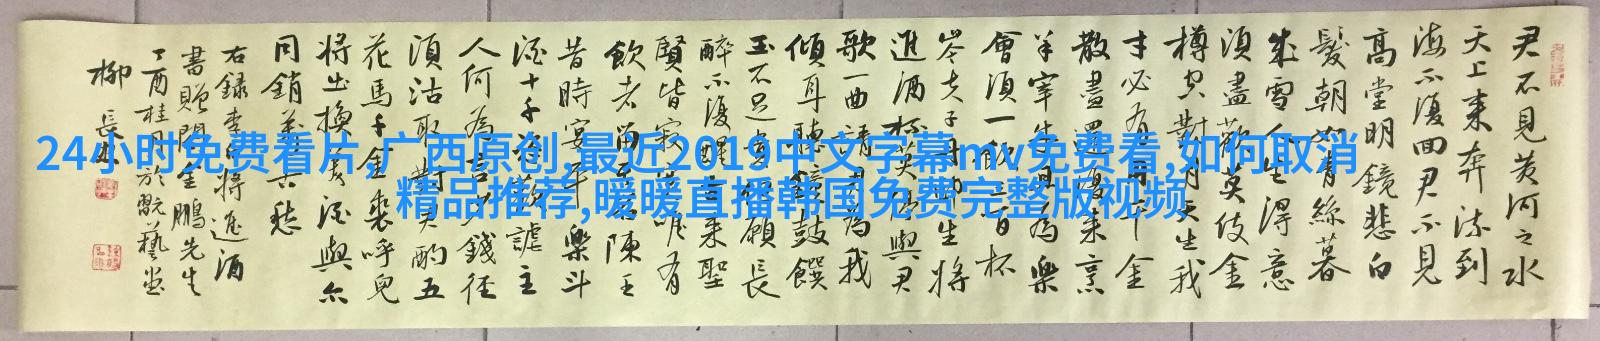 24小时免费看片,广西原创,最近2019中文字幕mv免费看,如何取消
精品推荐,暖暖直播韩国免费完整版视频
君不見黄河之水
天上来奔流到
海不復回君不見
高堂明鏡悲白
髮朝如青絲暮
成雪人生得意
須盡歡莫使金
樽空對月天生我
才必有用千金
散盡還復来烹
羊宰牛且為樂
會須一飲三百杯
岑夫子丹丘生將
進酒杯莫停與君
歌一曲請君為我
傾耳聽鐘鼓饌
玉不足貴願長
醉不復醒古来聖
賢皆寂寞唯有
飲者留其名陳王
昔時宴平樂斗
酒十千恣歡謔主
人何為言少錢径
須沽取對君酌五
花馬千金裘呼兒
將出換美酒與尔
同銷萬古愁
右録李白將進酒
書贈金鵬先生
丁酉桂月於翫藝堂
柳長